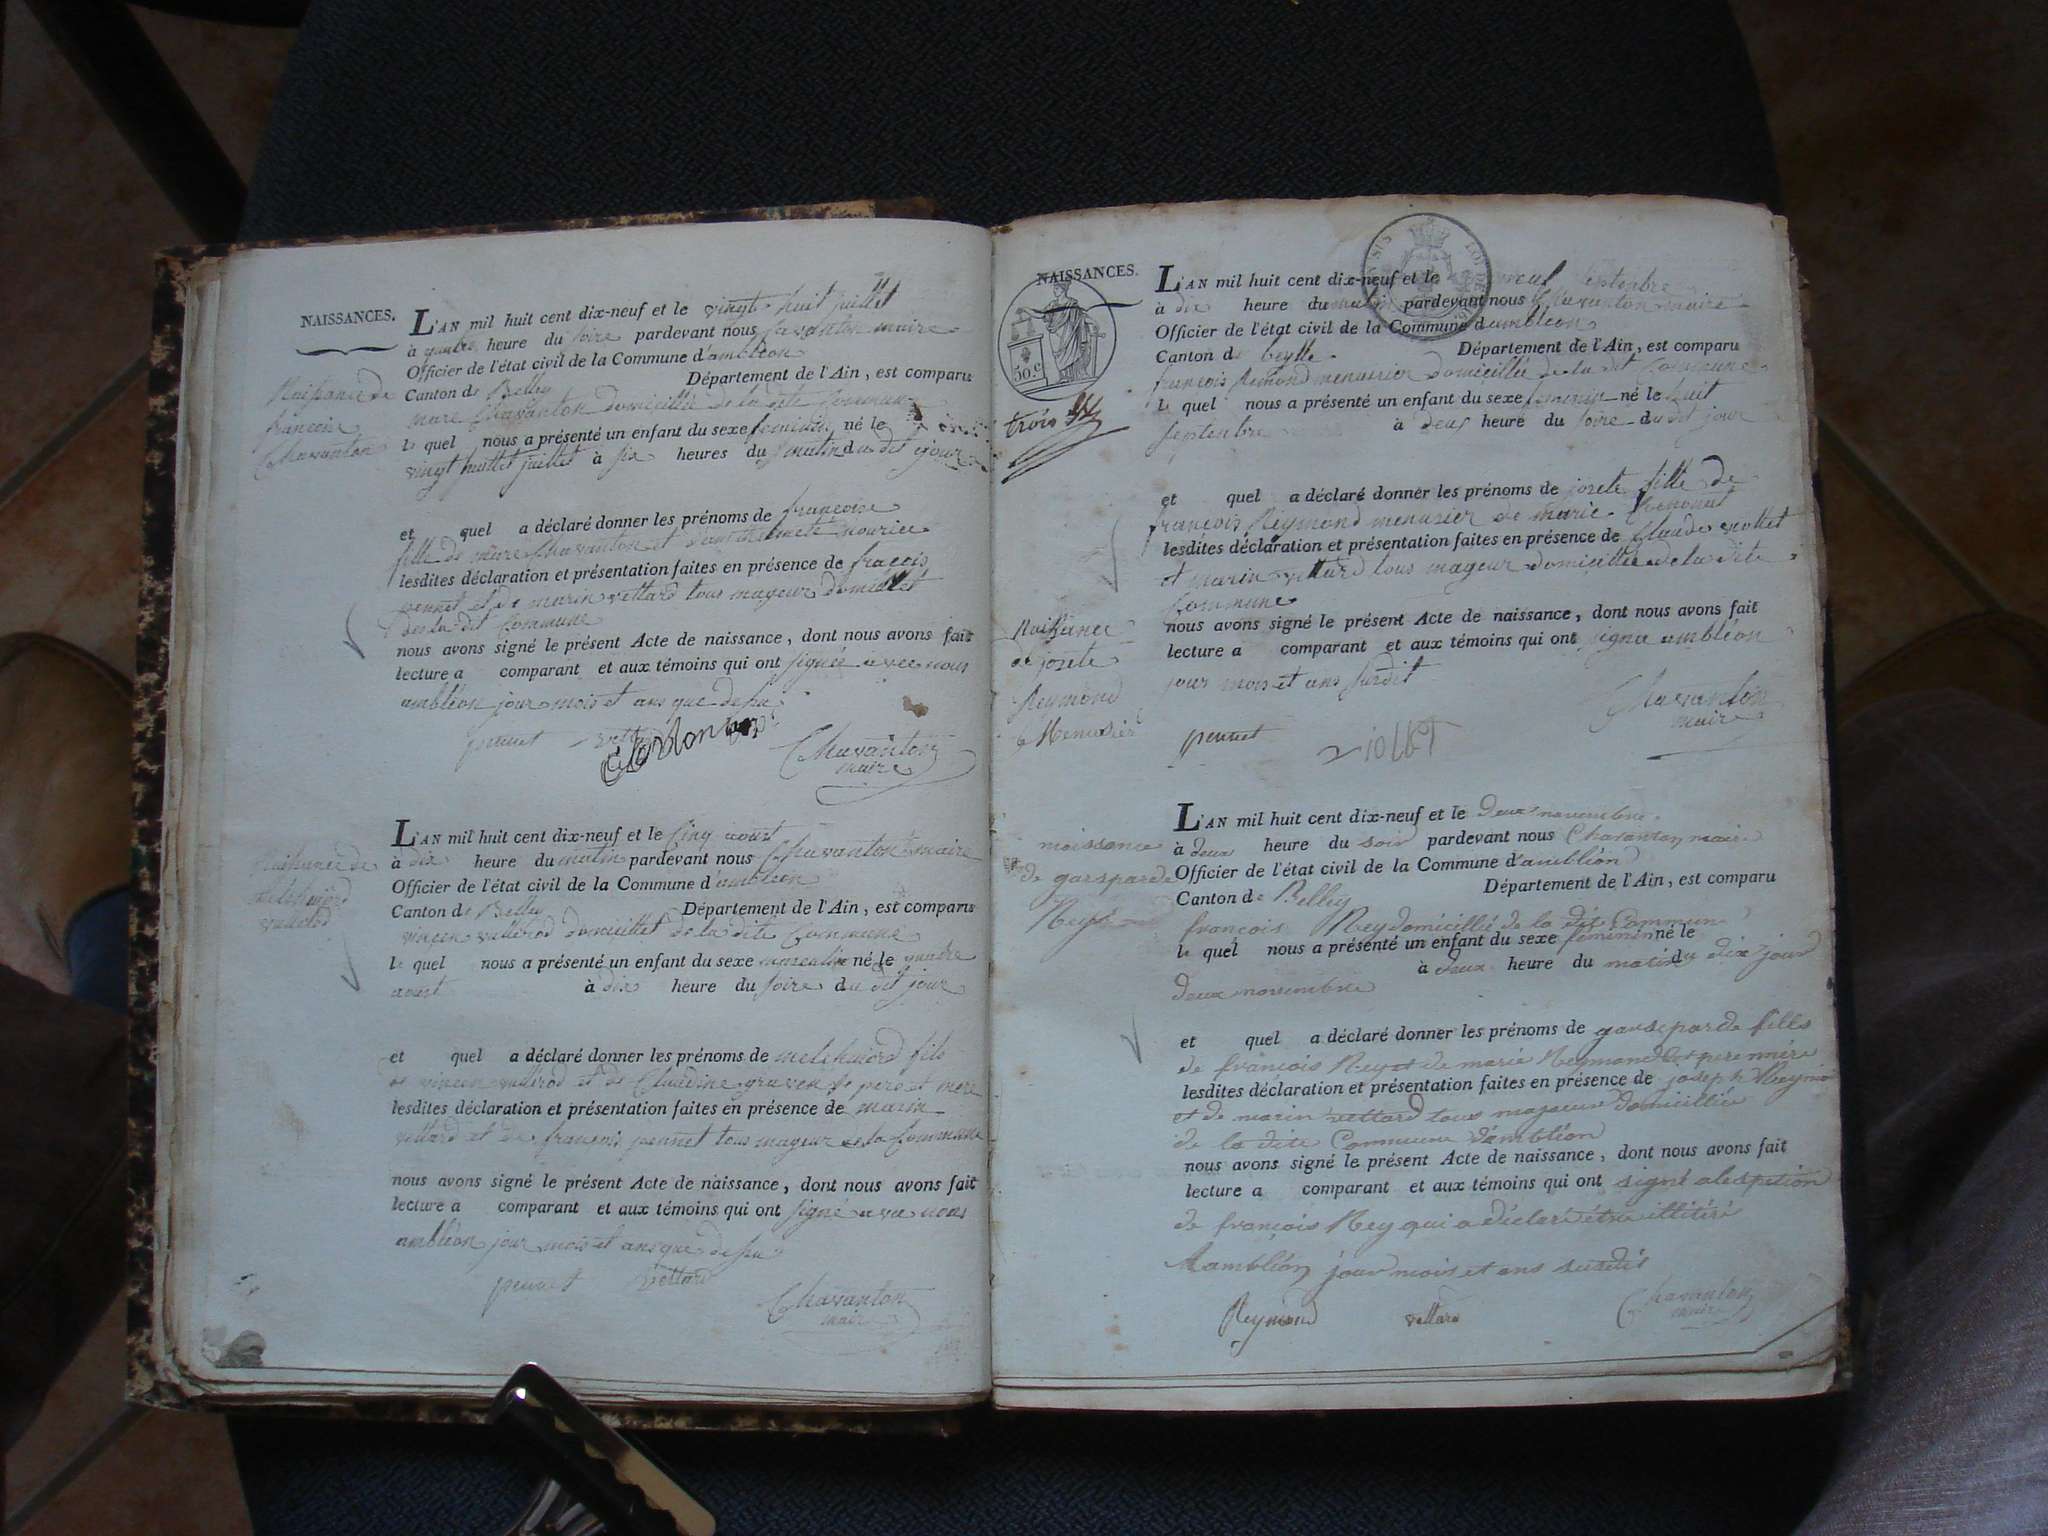 NAISSANCES.
L'AN mil huit cent dix-neuf et le vingt huit juillet
à quatre heure du soire pardevant nous chavanton maire
Officier de l'état civil de la Commune d'ambléon
Canton de Belley Département de l'Ain, est comparu
marc Chavanton domicillié de la dite Commune
le quel nous a présenté un enfant du sexe feminin né le
vingt huittet juillet à six heures du matin du dit jour
Naissance de
françoise
Chavanton
et quel a déclaré donner les prénoms de françoise
fille de marc Chavanton et
lesdites déclaration et présentation faites en présence de fraçois
pennet et de marin vettard tous mageur domicillet
de la dit Commune
nous avons signé le présent Acte de naissance, dont nous avons fait
lecture a comparant et aux témoins qui ont signée avec nous
ambléon jour mois et ans que desu
pennet vettard
Chavanton
maire
L'AN mil huit cent dix-neuf et le Cinq aoust
à dix heure du matin pardevant nous Chavanton maire
Officier de l'état civil de la Commune d'ambléon
Canton de Belley Département de l'Ain, est comparu
vincen vullerod domicillet de la dite Commune
le quel nous a présenté un enfant du sexe masculin né le quadre
aoust à dix heure du soire du dit jour
Naissance de
melchiord
vullerod
et quel a déclaré donner les prénoms de melchiord fils
de vincen vullerod et de Claudine pere et mere
lesdites déclaration et présentation faites en présence de marin
vettard et de françois pennet tous mageur de la Commune
nous avons signé le présent Acte de naissance, dont nous avons fait
lecture a comparant et aux témoins qui ont signé avec nous
ambléon jour mois et ans que desu
pennet vettard
Chavanton
maire
NAISSANCES.
50 c
trois
L'AN mil huit cent dix-neuf et le neuf septembre
à dix heure du matin pardevant nous Chavanton maire
Officier de l'état civil de la Commune d'ambléon
Canton de beylle Département de l'Ain, est comparu
françois Remond menusier domicillée de la dit Commune
le quel nous a présenté un enfant du sexe feminin né le huit
septenbre à deux heure du soire du dit jour
et quel a déclaré donner les prénoms de josete fille de
françois Reymond menusier de marie
lesdites déclaration et présentation faites en présence de Claude viollet
et marin vettard tous mageur domicillée de la dite
Commune
nous avons signé le présent Acte de naissance, dont nous avons fait
lecture a comparant et aux témoins qui ont signa ambléon
jour mois et ans surdit
Naissance
de josete
Reymond
Menusier
Chavanton
maire
pennet viollet
L'AN mil huit cent dix-neuf et le deux novembre
à deux heure du soir pardevant nous Chavanton maire
Officier de l'état civil de la Commune d'ambléon
Canton de Belley Département de l'Ain, est comparu
françois Rey domicillié de la dite Commune
le quel nous a présenté un enfant du sexe féminin né le
à deux heure du matin du dix jour
deux novembre
naissance
de garsparde
Rey
et quel a déclaré donner les prénoms de garsparde fille
de françois Rey et de marie Reymond pere mére
lesdites déclaration et présentation faites en présence de joseph Reymo
et de marin vettard tous majeur domicillié
de la dite Commune d'ambléon
nous avons signé le présent Acte de naissance, dont nous avons fait
lecture a comparant et aux témoins qui ont signé alespetion
de françois Rey qui a déclaré étre illitéré
A ambléon jour mois et ans susdit
Reymond vettard
Chavanton
maire